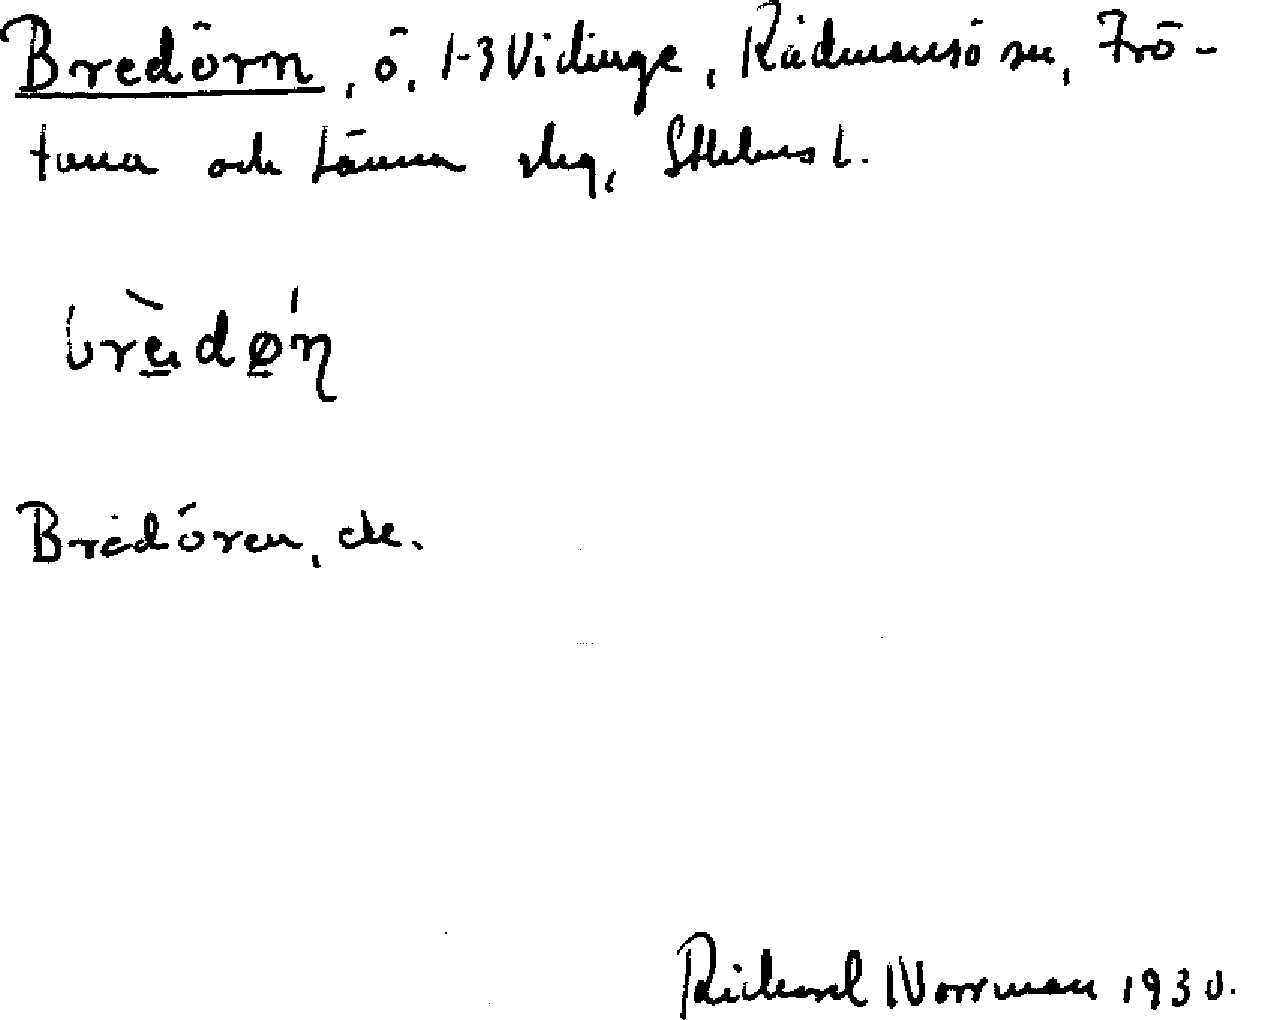 Bredörn, ö, 1-3 Vidinge, Rådmansö sn, Frö-
tuna och Länna skg, Sthlms l.
brèdǿn
Bredören, ek.
Richard Norrman 1930.